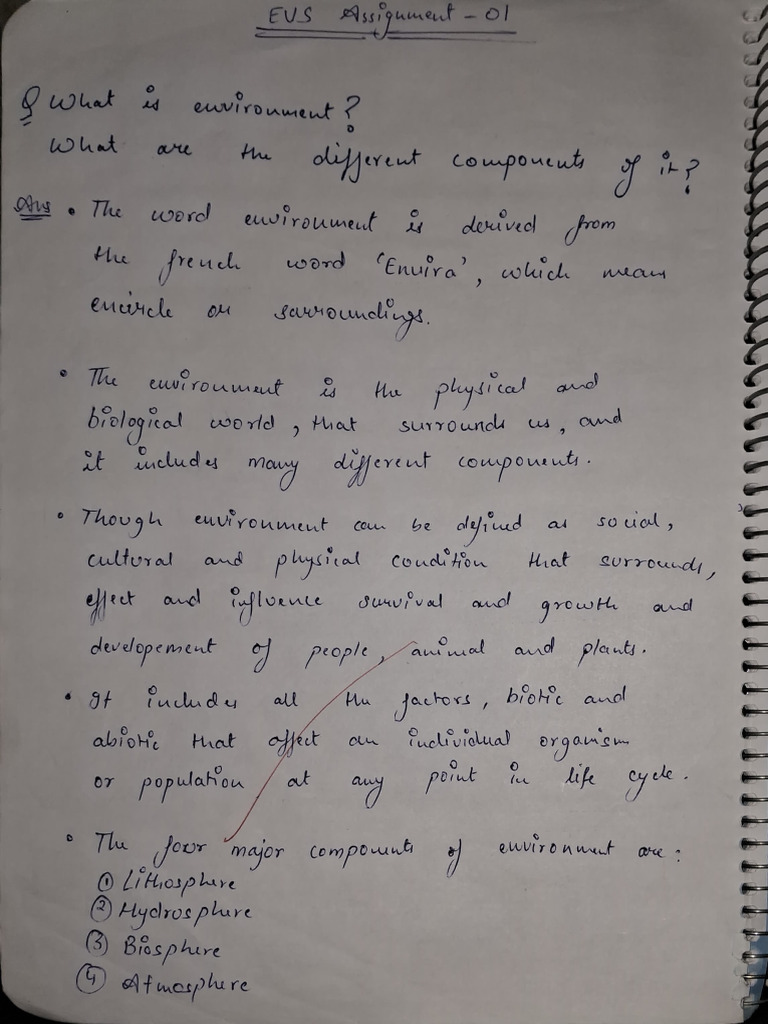 EVS Assignment - 01
Q What is environment?
What are the different components of it?
Ans • The word environment is derived from
the french word 'Envira', which mean
encircle or sarroundings.
• The environment is the physical and
biological world, that surrounds us, and
it includes many different components.
• Though environment can be defined as social,
cultural and physical condition that surrounds,
effect and influence survival and growth and
developement of people, animal and plants.
• It includes all the factors, biotic and
abiotic that affect an individual organism
or population at any point in life cycle.
• The four major components of environment are:
① Lithosphere
② Hydrosphere
③ Biosphere
④ Atmosphere